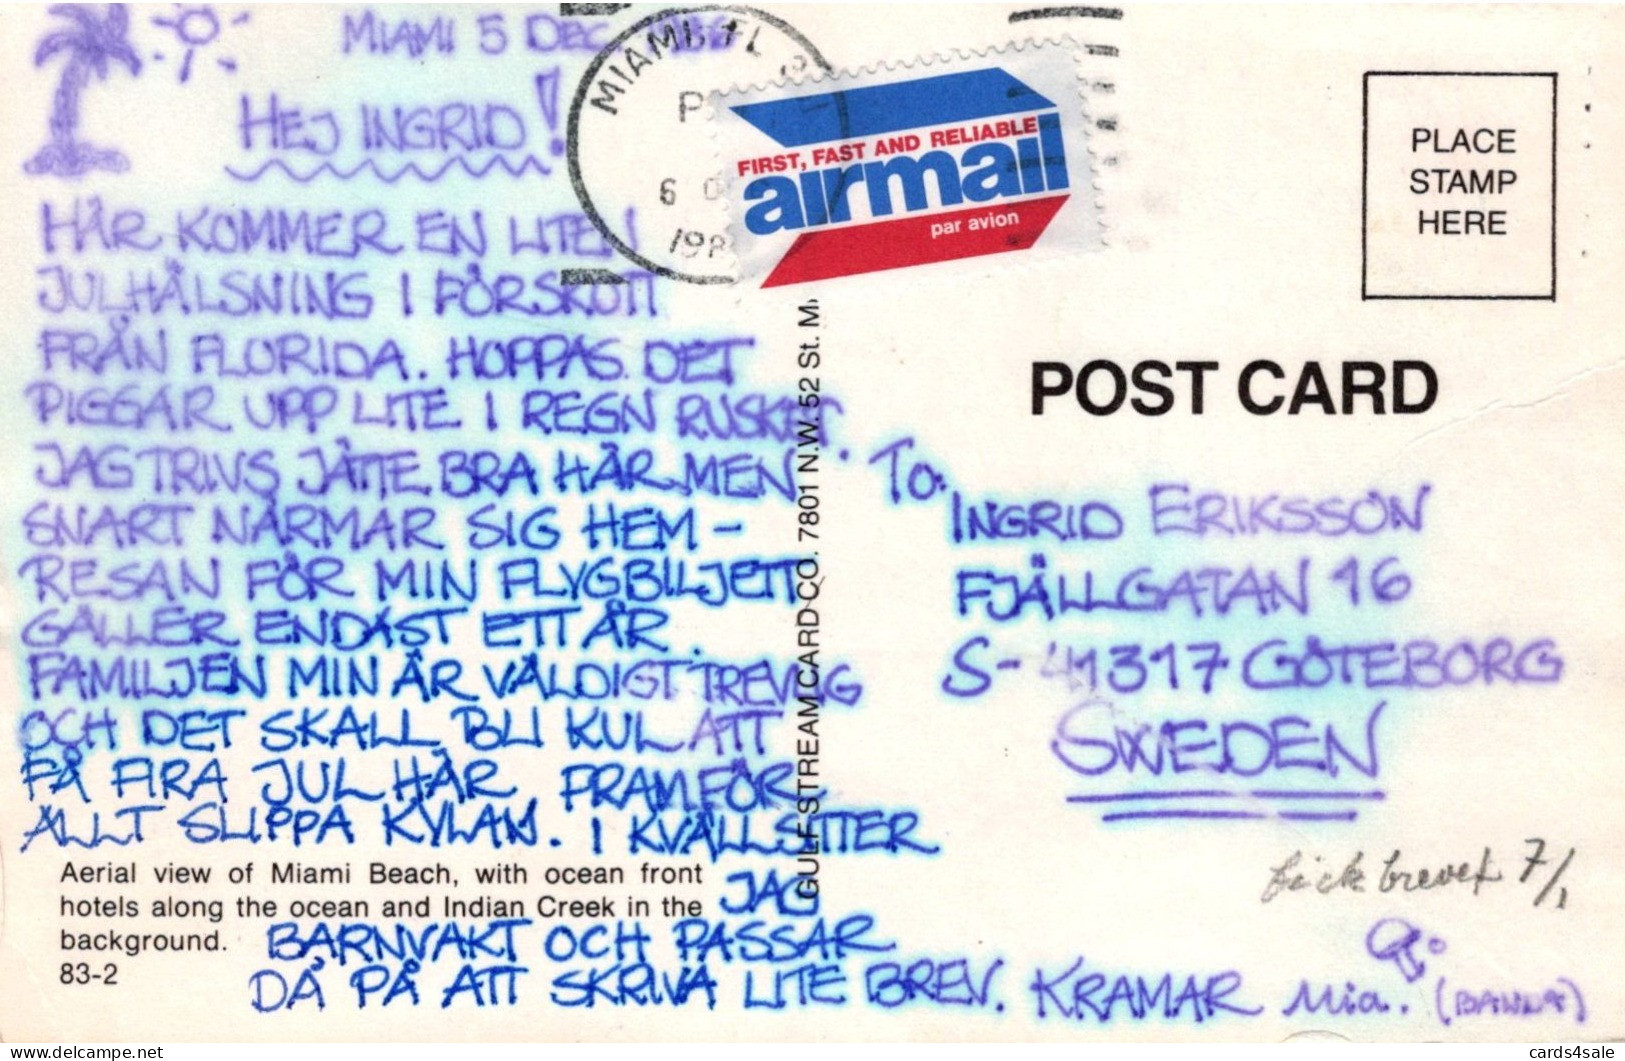 MIAMI 5 DEC
HEJ INGRID!
HÄR KOMMER EN LITEN
JULHÄLSNING I FÖRSKOTT
FRÅN FLORIDA. HOPPAS DET
PIGGAR UPP LITE I REGN RUSKET.
JAG TRIVS JÄTTE BRA HÄR MEN
SNART NÄRMAR SIG HEM-
RESAN FÖR MIN FLYGBILJETT
GÄLLER ENDAST ETT ÅR.
FAMILJEN MIN ÄR VÄLDIGT TREVLIG
OCH DET SKALL BLI KUL ATT
FÅ FIRA JUL HÄR FRAMFÖR
ALLT SLIPPA KYLAN. I KVÄLL SITTER
JAG
BARNVAKT OCH PASSAR
DÅ PÅ ATT SKRIVA LITE BREV. KRAMAR Mia.
Aerial view of Miami Beach, with ocean front
hotels along the ocean and Indian Creek in the
background.
83-2
MIAMI, FL
P
6
198
FIRST, FAST AND RELIABLE
airmail
par avion
GULF STREAM CARD CO. 7801 N.W. 52 St. M
PLACE
STAMP
HERE
POST CARD
To.
INGRID ERIKSSON
FJÄLLGATAN 16
S-41317 GÖTEBORG
SWEDEN
fick brevet 7/1
cards4sale